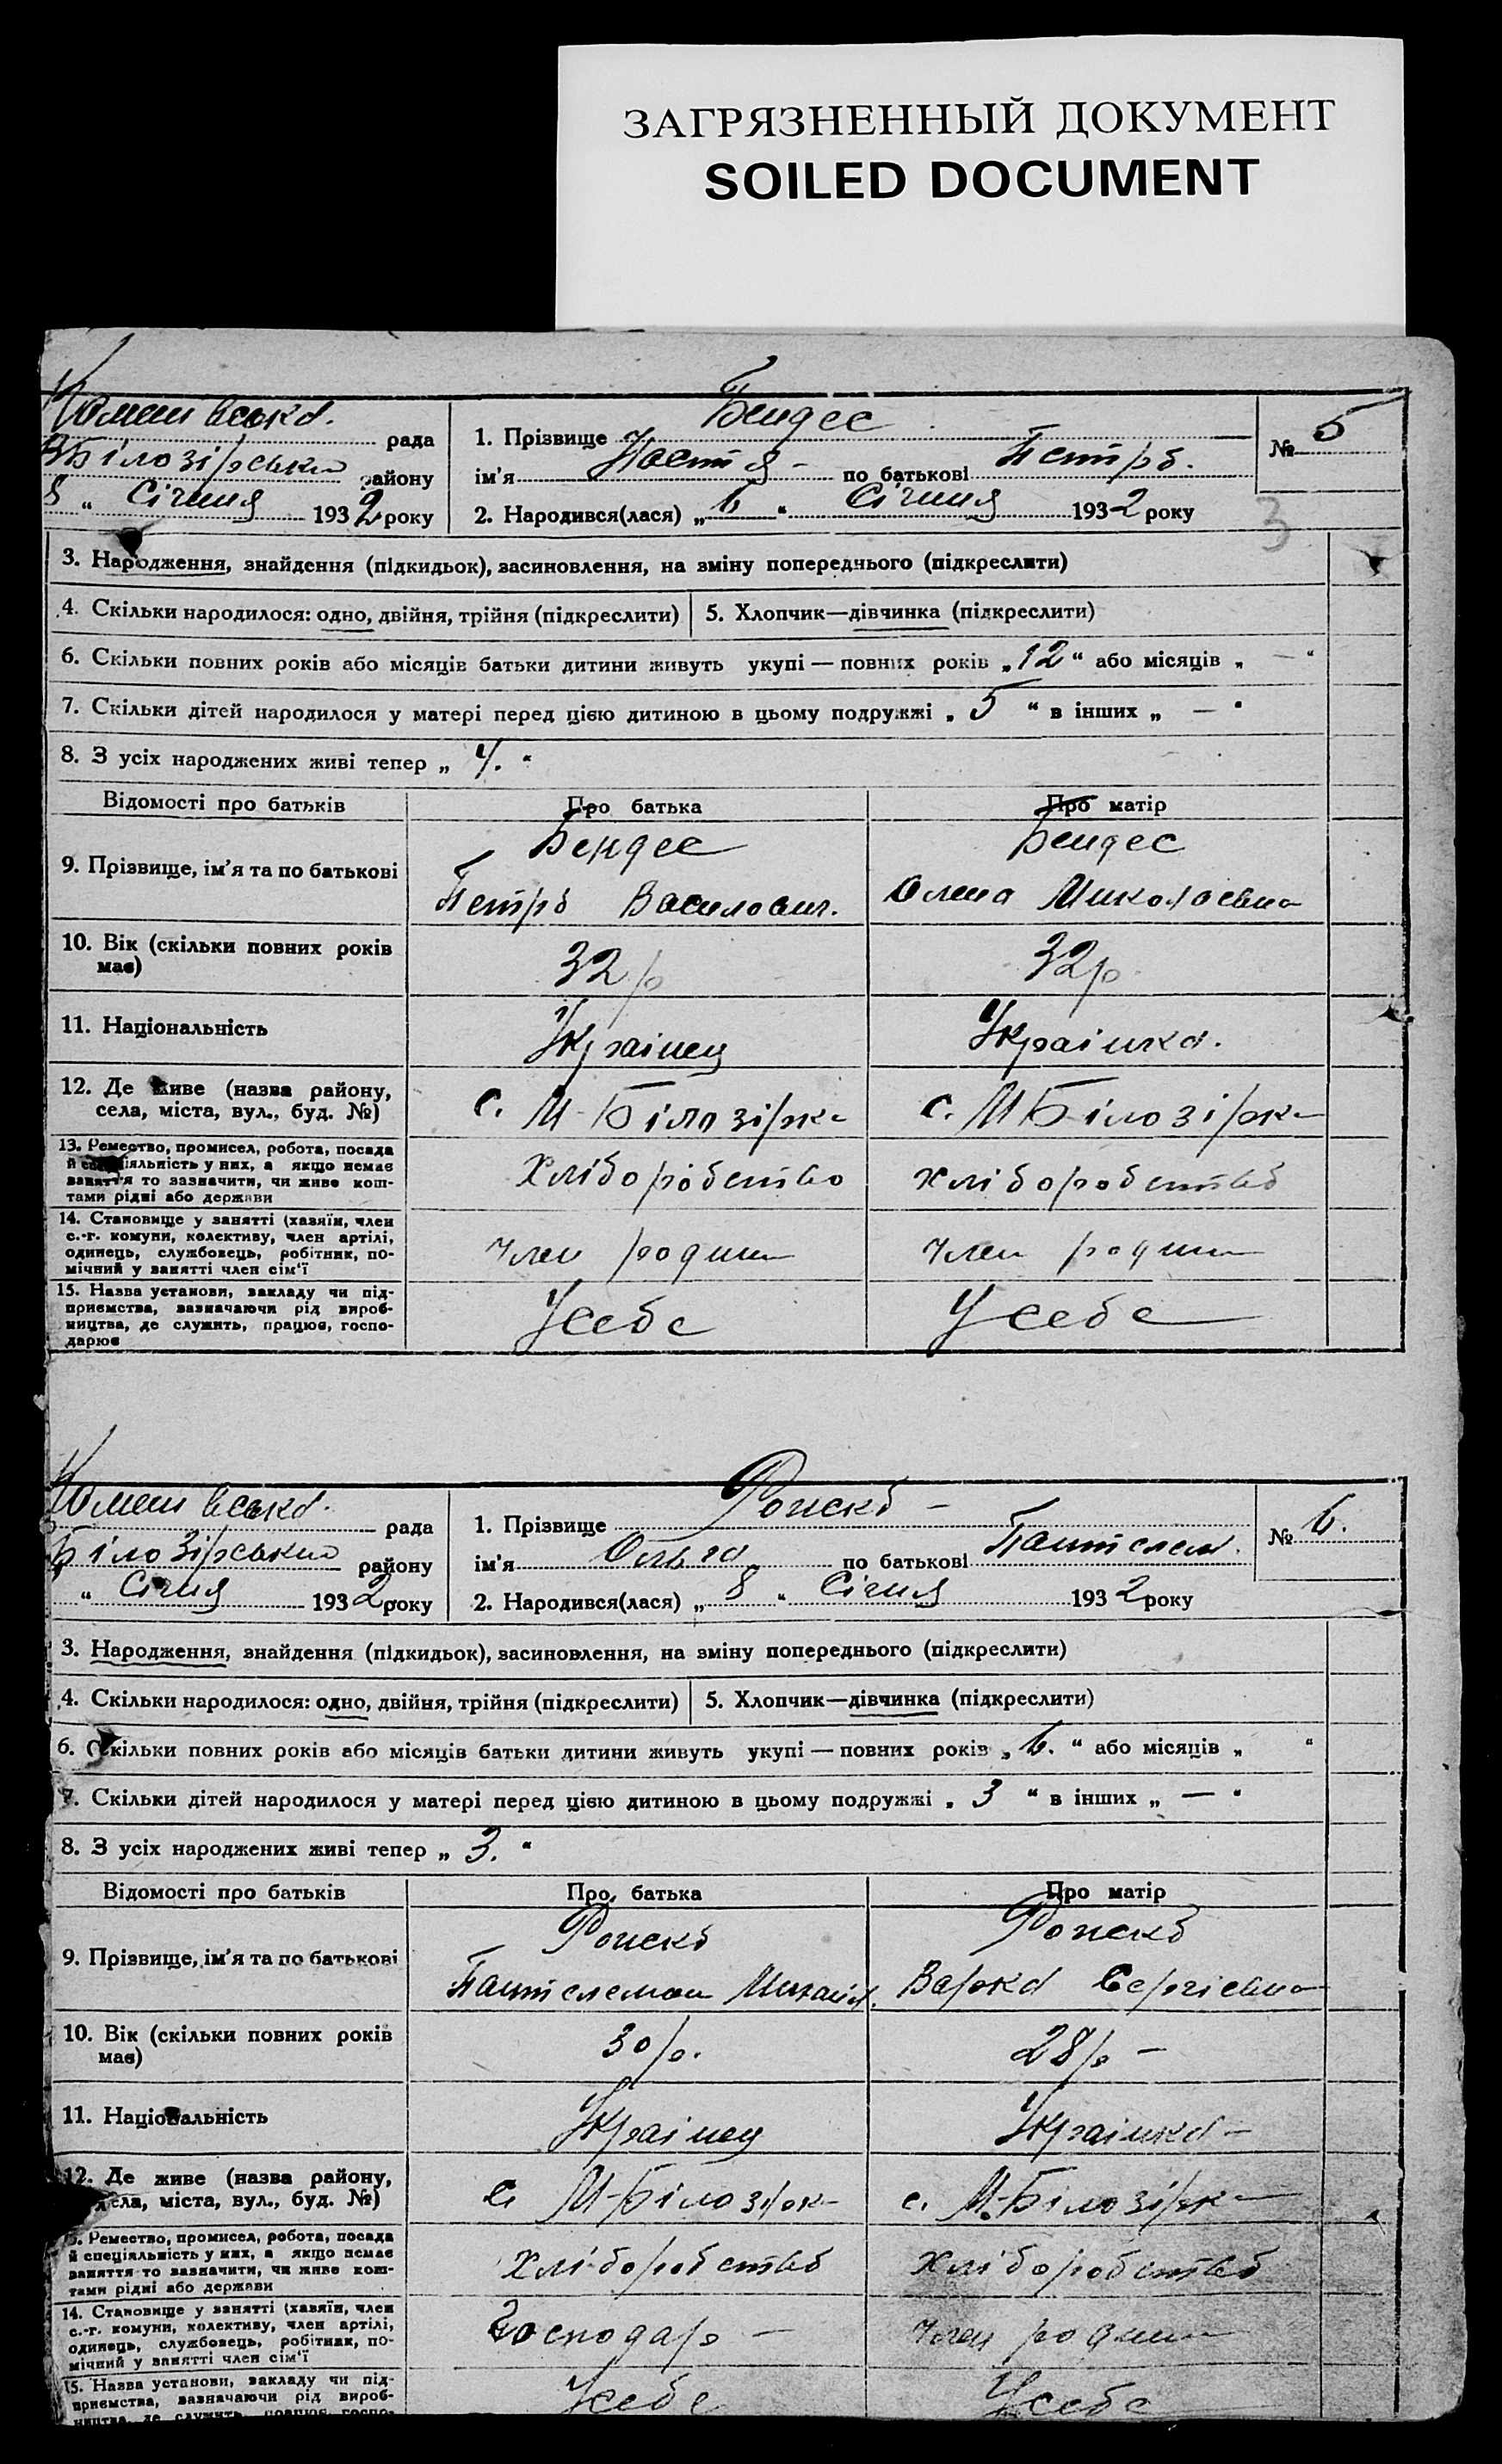 ЗАГРЯЗНЕННЫЙ ДОКУМЕНТ
SOILED DOCUMENT
рада
Білозірськи району
8 " Січня 1932 року
1. Прізвище Бендес
ім'я Настя - по батькові Петрô.
2. Народився(лася) „ 6 " Січня 1932 року
№ 5
3
3. Народження, знайдення (підкидьок), засиновлення, на зміну попереднього (підкреслити)
4. Скільки народилося: одно, двійня, трійня (підкреслити) 5. Хлопчик—дівчинка (підкреслити)
6. Скільки повних років або місяців батьки дитини живуть укупі — повних років „ 12 " або місяців „ — "
7. Скільки дітей народилося у матері перед цією дитиною в цьому подружжі „ 5 " в інших „ — "
8. З усіх народжених живі тепер „ 4. "
Відомості про батьків Про батька Про матір
9. Прізвище, ім'я та по батькові
Бендес Бендес
Петро Василович. Олена Миколаевна
10. Вік (скільки повних років має) 32 р 32 р
11. Національність Украінец Украінка.
12. Де живе (назва району,
села, міста, вул., буд. №)
с. М-Білозірк с. М Білозірк
13. Ремество, промисел, робота, посада
й спеціяльність у них, а якщо немає
заняття то зазначити, чи живе кош-
тами рідні або держави
Хліборобство хліборобство
14. Становище у занятті (хазяїн, член
с.-г. комуни, колективу, член артілі,
одинець, службовець, робітник, по-
мічний у занятті член сім'ї
Член родини член родини
15. Назва установи, закладу чи під-
приємства, зазначаючи рід вироб-
ництва, де служить, працює, госпо-
дарює
У себе У себе
рада
Білозірськи району
" Січня 1932 року
1. Прізвище
ім'я Ольга по батькові Пантелем.
2. Народився(лася) „ 8 " Січня 1932 року
№ 6.
3. Народження, знайдення (підкидьок), засиновлення, на зміну попереднього (підкреслити)
4. Скільки народилося: одно, двійня, трійня (підкреслити) 5. Хлопчик—дівчинка (підкреслити)
6. Скільки повних років або місяців батьки дитини живуть укупі — повних років „ 6. " або місяців „ "
7. Скільки дітей народилося у матері перед цією дитиною в цьому подружжі „ 3 " в інших „ — "
8. З усіх народжених живі тепер „ 3. "
Відомості про батьків Про батька Про матір
9. Прізвище, ім'я та по батькові
Пантелемон Михайл. Варка Сергіевна
10. Вік (скільки повних років має) 30 р. 28 р —
11. Національність Украінец Украінка —
12. Де живе (назва району,
села, міста, вул., буд. №)
с М-Білозірк с. М-Білозірк
Ремество, промисел, робота, посада
й спеціяльність у них, а якщо немає
заняття то зазначити, чи живе кош-
тами рідні або держави
Хліборобство Хліборобство
14. Становище у занятті (хазяїн, член
с.-г. комуни, колективу, член артілі,
одинець, службовець, робітник, по-
мічний у занятті член сім'ї
Господар — член родини
15. Назва установи, закладу чи під-
приємства, зазначаючи рід вироб-
ництва, де служить, працює, госпо-
У себе У себе